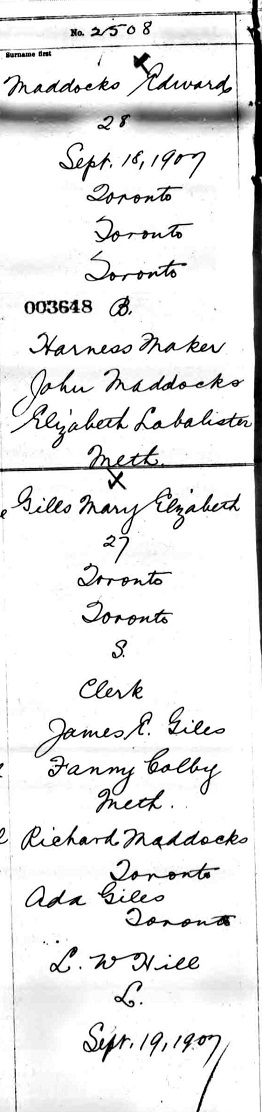 No. 2508
Surname first
Maddocks Edward
28
Sept. 18, 1907
Toronto
Toronto
Toronto
003648 B.
Harness Maker
John Maddocks
Elizabeth Labalister
Meth.
Giles Mary Elizabeth
27
Toronto
Toronto
S.
Clerk
James E. Giles
Fanny Colby
Meth.
Richard Maddocks
Toronto
Ada Giles
Toronto
L. W Hill
L.
Sept. 19, 1907